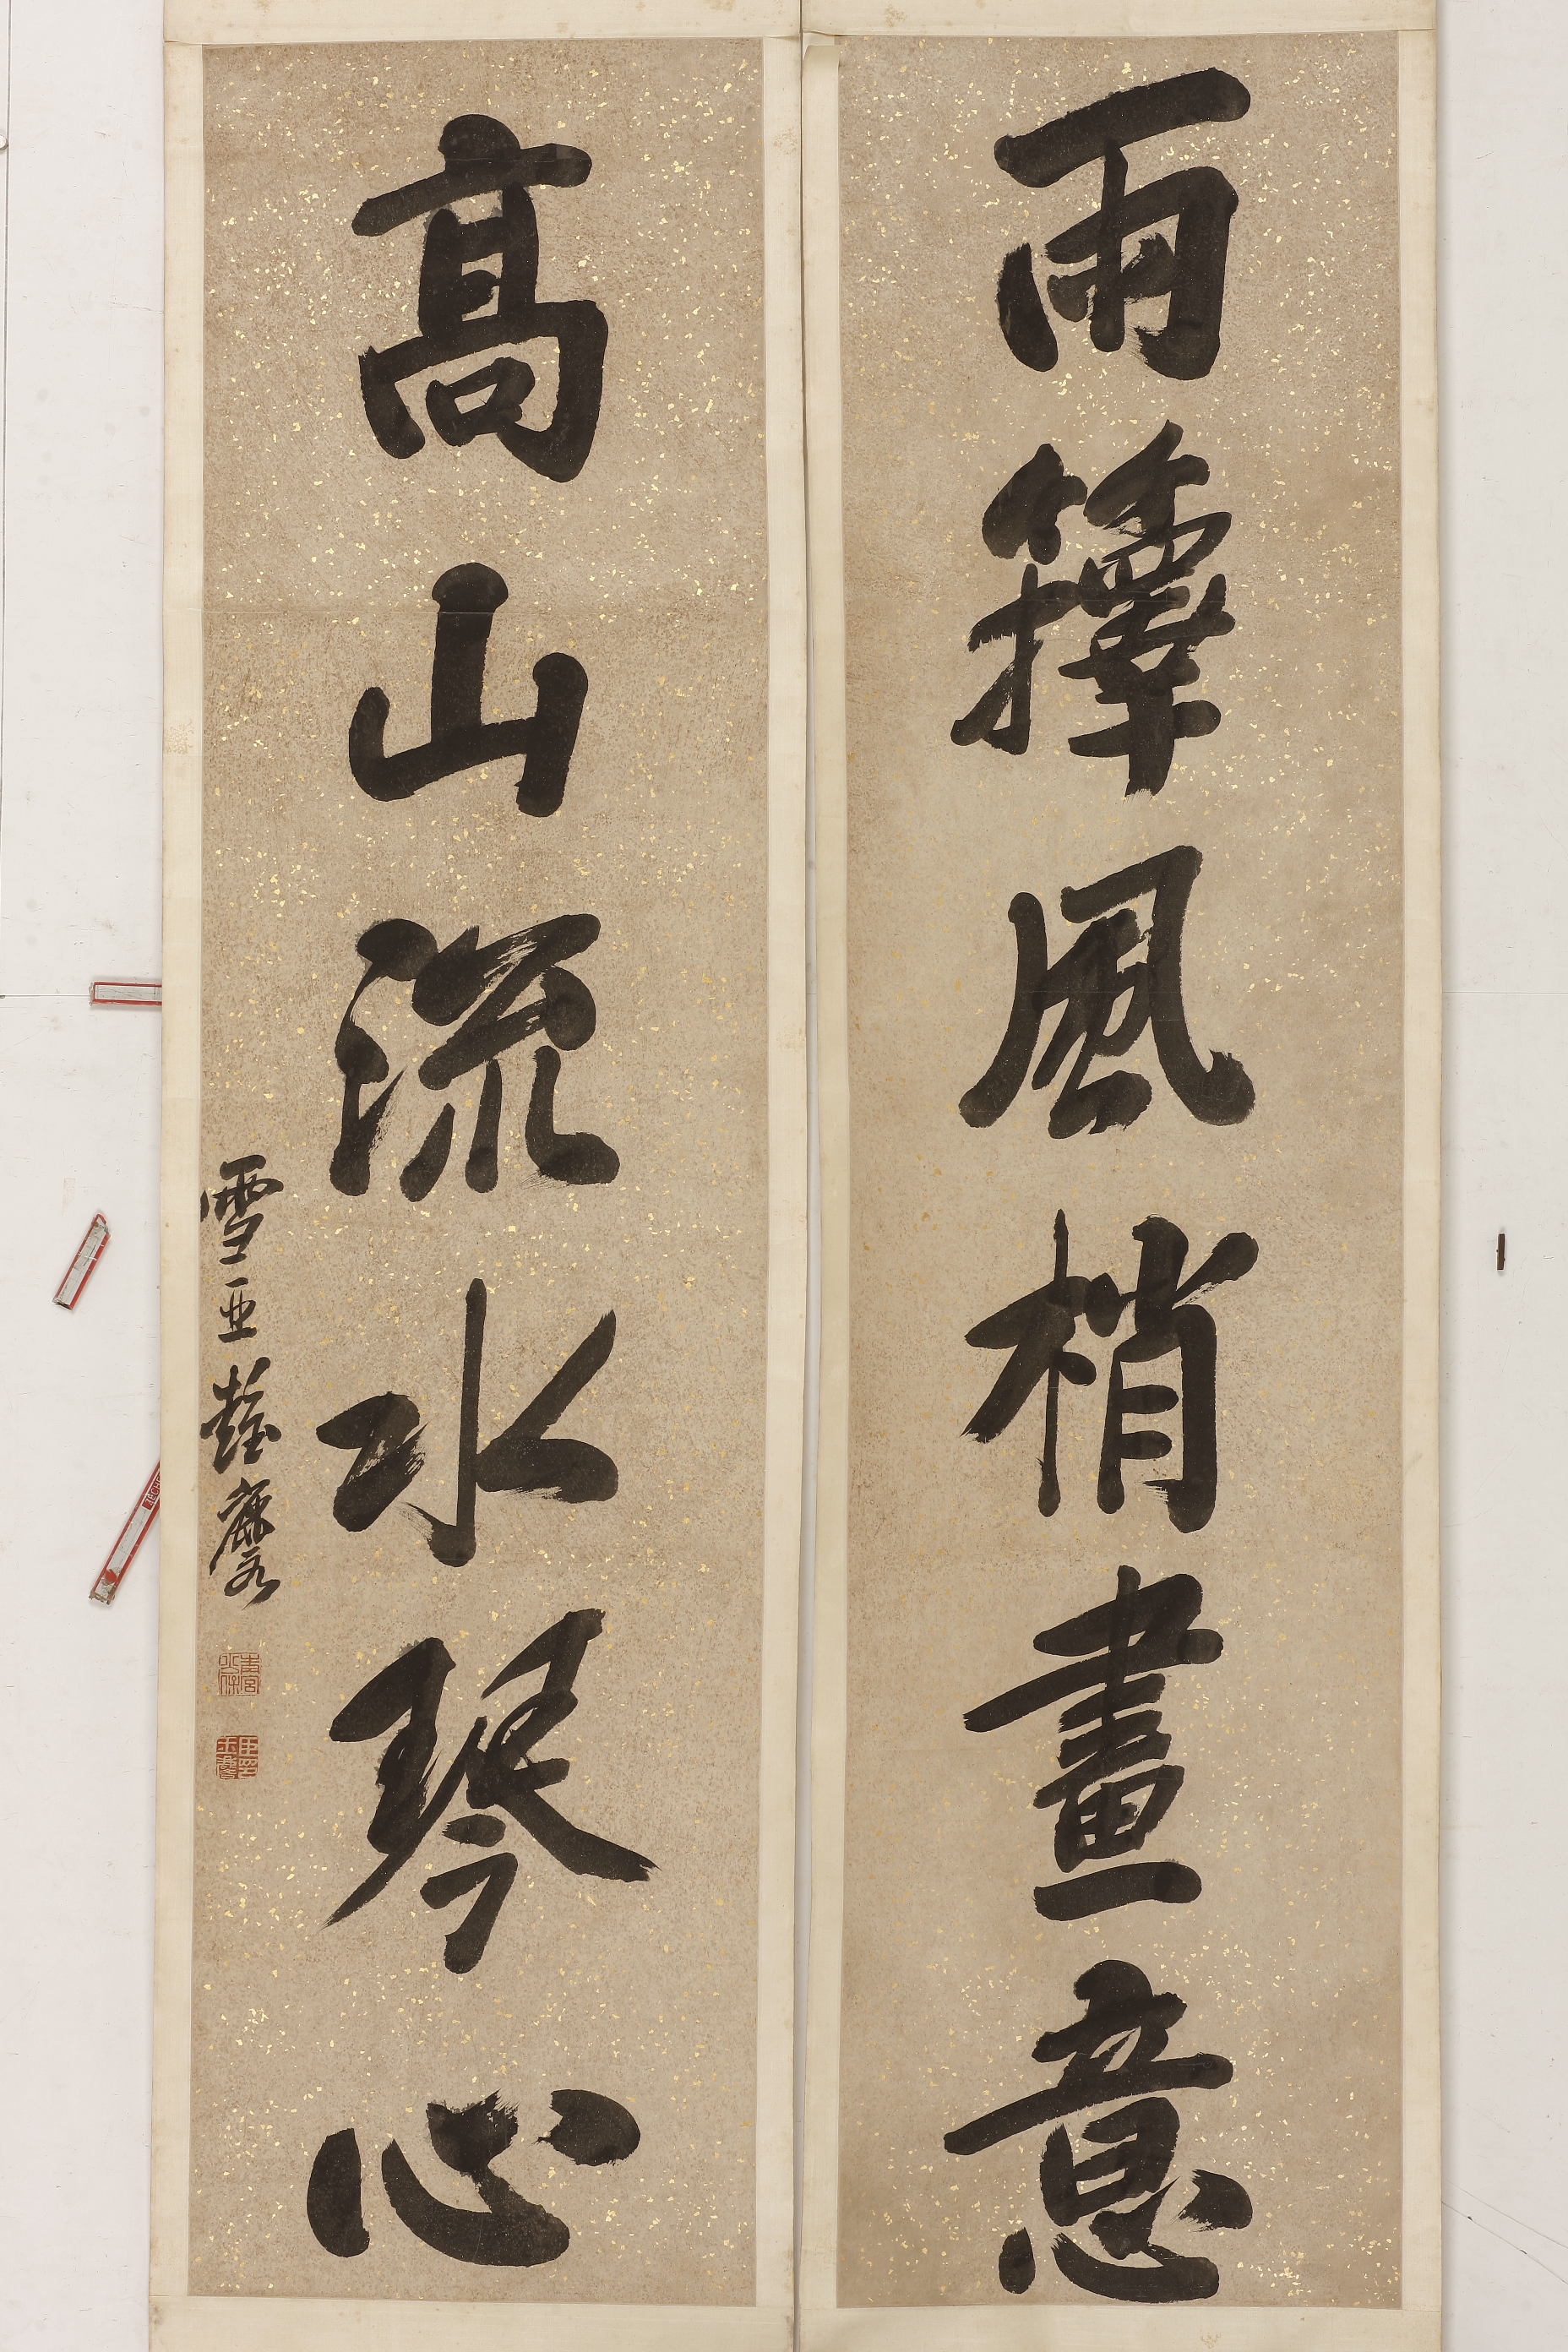 雨籜風梢畫意
高山流水琴心
雪